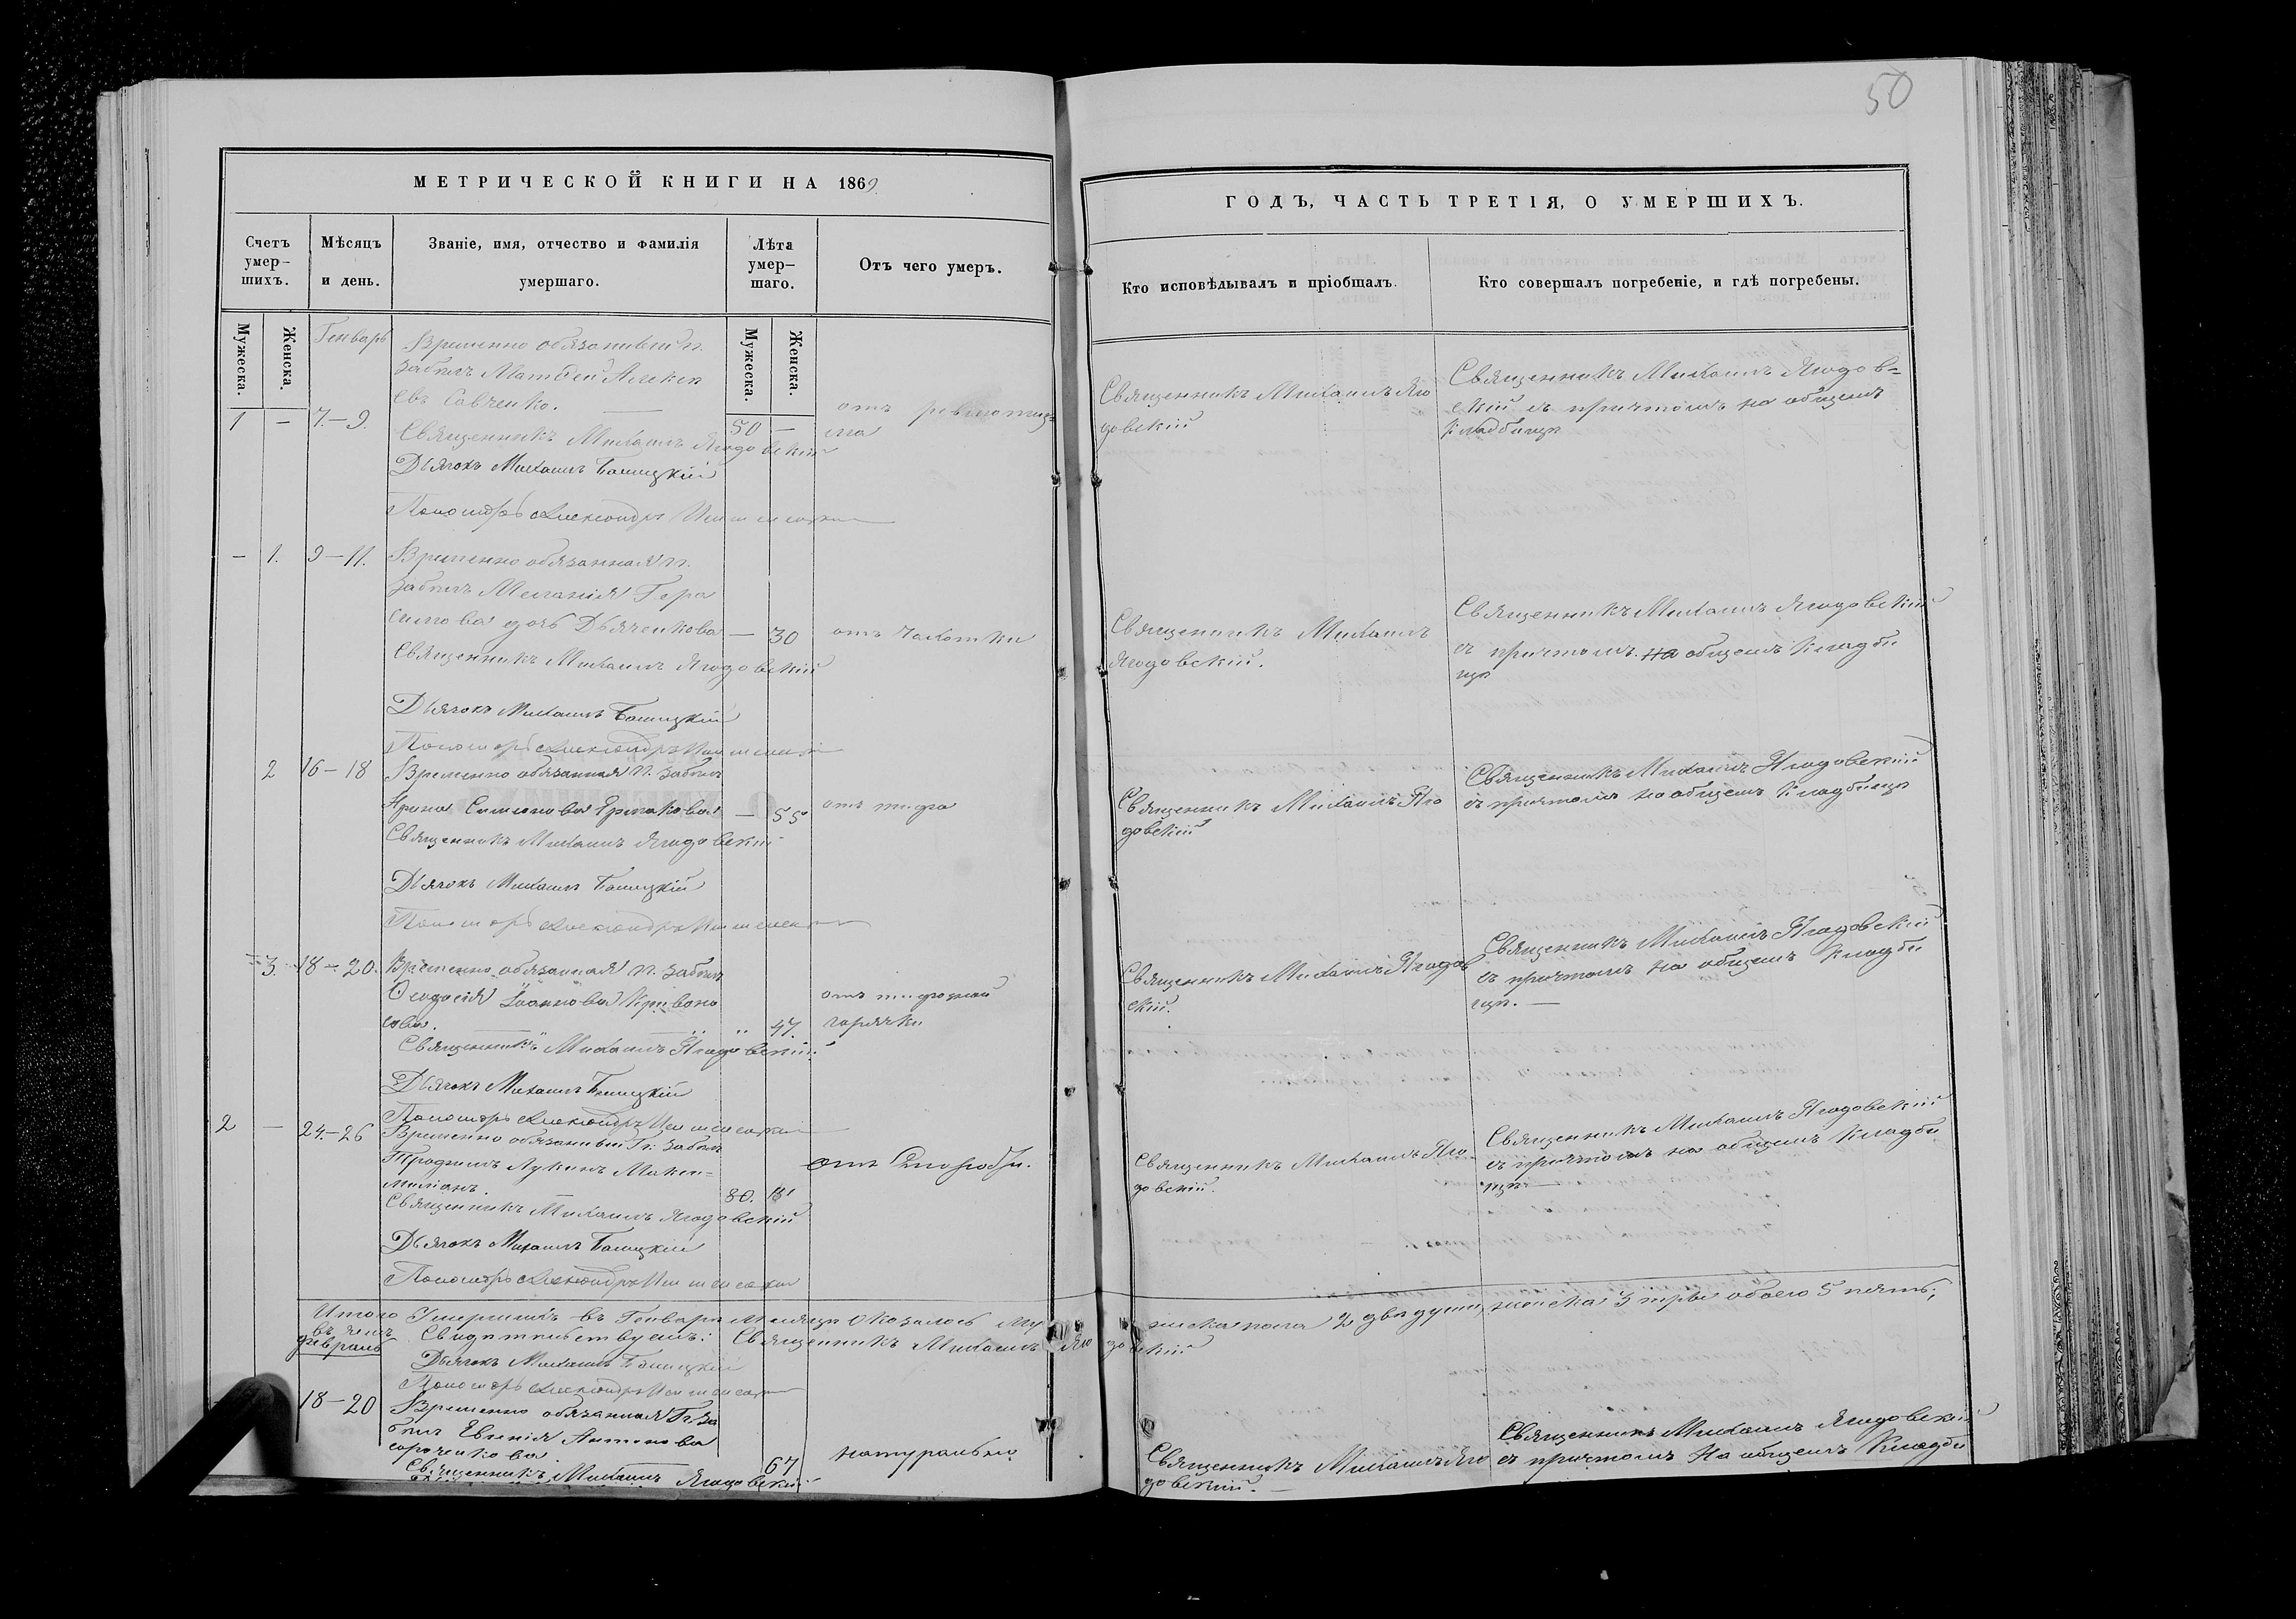 50
МЕТРИЧЕСКОЙ КНИГИ НА 1869
Счетъ умер-шихъ.
Мѣсяцъ и день.
Званіе, имя, отчество и фамилія умершаго.
Лѣта умер-шаго.
Отъ чего умеръ.
Мужеска.
Женска.
Мужеска.
Женска.
Генварь
Временно обязанный п.
Матвей Алексе
евъ Савченко.
1 — 7.—9. 50 —
отъ ревматиз
ма
Священникъ Михаилъ Ягодовскій
Дьячокъ Михаилъ
Пономарь Александръ
— 1. 9—11. Временно обязанная п.
Меланія Гера
симова дочь Дьяченкова — 30 отъ чахотки
Священникъ Михаилъ Ягодовскій
Дьячокъ Михаилъ
Пономарь Александръ
2 16—18 Временно обязанная п.
Ирина Симонова Ермакова — 55 отъ тифа
Священникъ Михаилъ Ягодовскій
Дьячокъ Михаилъ
Пономарь Александръ
3. 18—20. Временно обязанная п.
Ѳеодосія Іоаннова Кривоно
сова. 47. отъ тифозной
горячки
Священникъ Михаилъ Ягодовскій
Дьячокъ Михаилъ
Пономарь Александръ
2 — 24—26 Временно обязанный
Трофимъ Лукинъ
80.
Священникъ Михаилъ Ягодовскій
Дьячокъ Михаилъ
Пономарь Александръ
Итого умершихъ въ Генварѣ мѣсяцѣ оказалось му
Свидѣтельствуемъ: Священникъ Михаилъ Яго
Февраль
Дьячокъ Михаилъ
Пономарь Александръ
18—20 Временно обязанная
Евгенія Антонова
67 натурально
Священникъ Михаилъ Ягодовскій
ГОДЪ, ЧАСТЬ ТРЕТІЯ, О УМЕРШИХЪ.
Кто исповѣдывалъ и пріобщалъ.
Кто совершалъ погребеніе, и гдѣ погребены.
Священникъ Михаилъ Яго
довскій
Священникъ Михаилъ Ягодов=
скій съ причтомъ на общемъ
кладбищѣ
Священникъ Михаилъ
Ягодовскій.
Священникъ Михаилъ Ягодовскій
съ причтомъ на общемъ кладби
щѣ
Священникъ Михаилъ Яго
довскій
Священникъ Михаилъ Ягодовскій
съ причтомъ на общемъ кладбищѣ
Священникъ Михаилъ Ягодов
скій.
Священникъ Михаилъ Ягодовскій
съ причтомъ на общемъ кладби
щѣ. —
Священникъ Михаилъ Яго
довскій.
Священникъ Михаилъ Ягодовскій
съ причтомъ на общемъ кладби
щѣ —
жеска пола 2 двѣ души, женска 3 три обоего 5 пять;
довскій
Священникъ Михаилъ Яго
довскій. —
Священникъ Михаилъ Ягодовскій
съ причтомъ на общемъ кладби